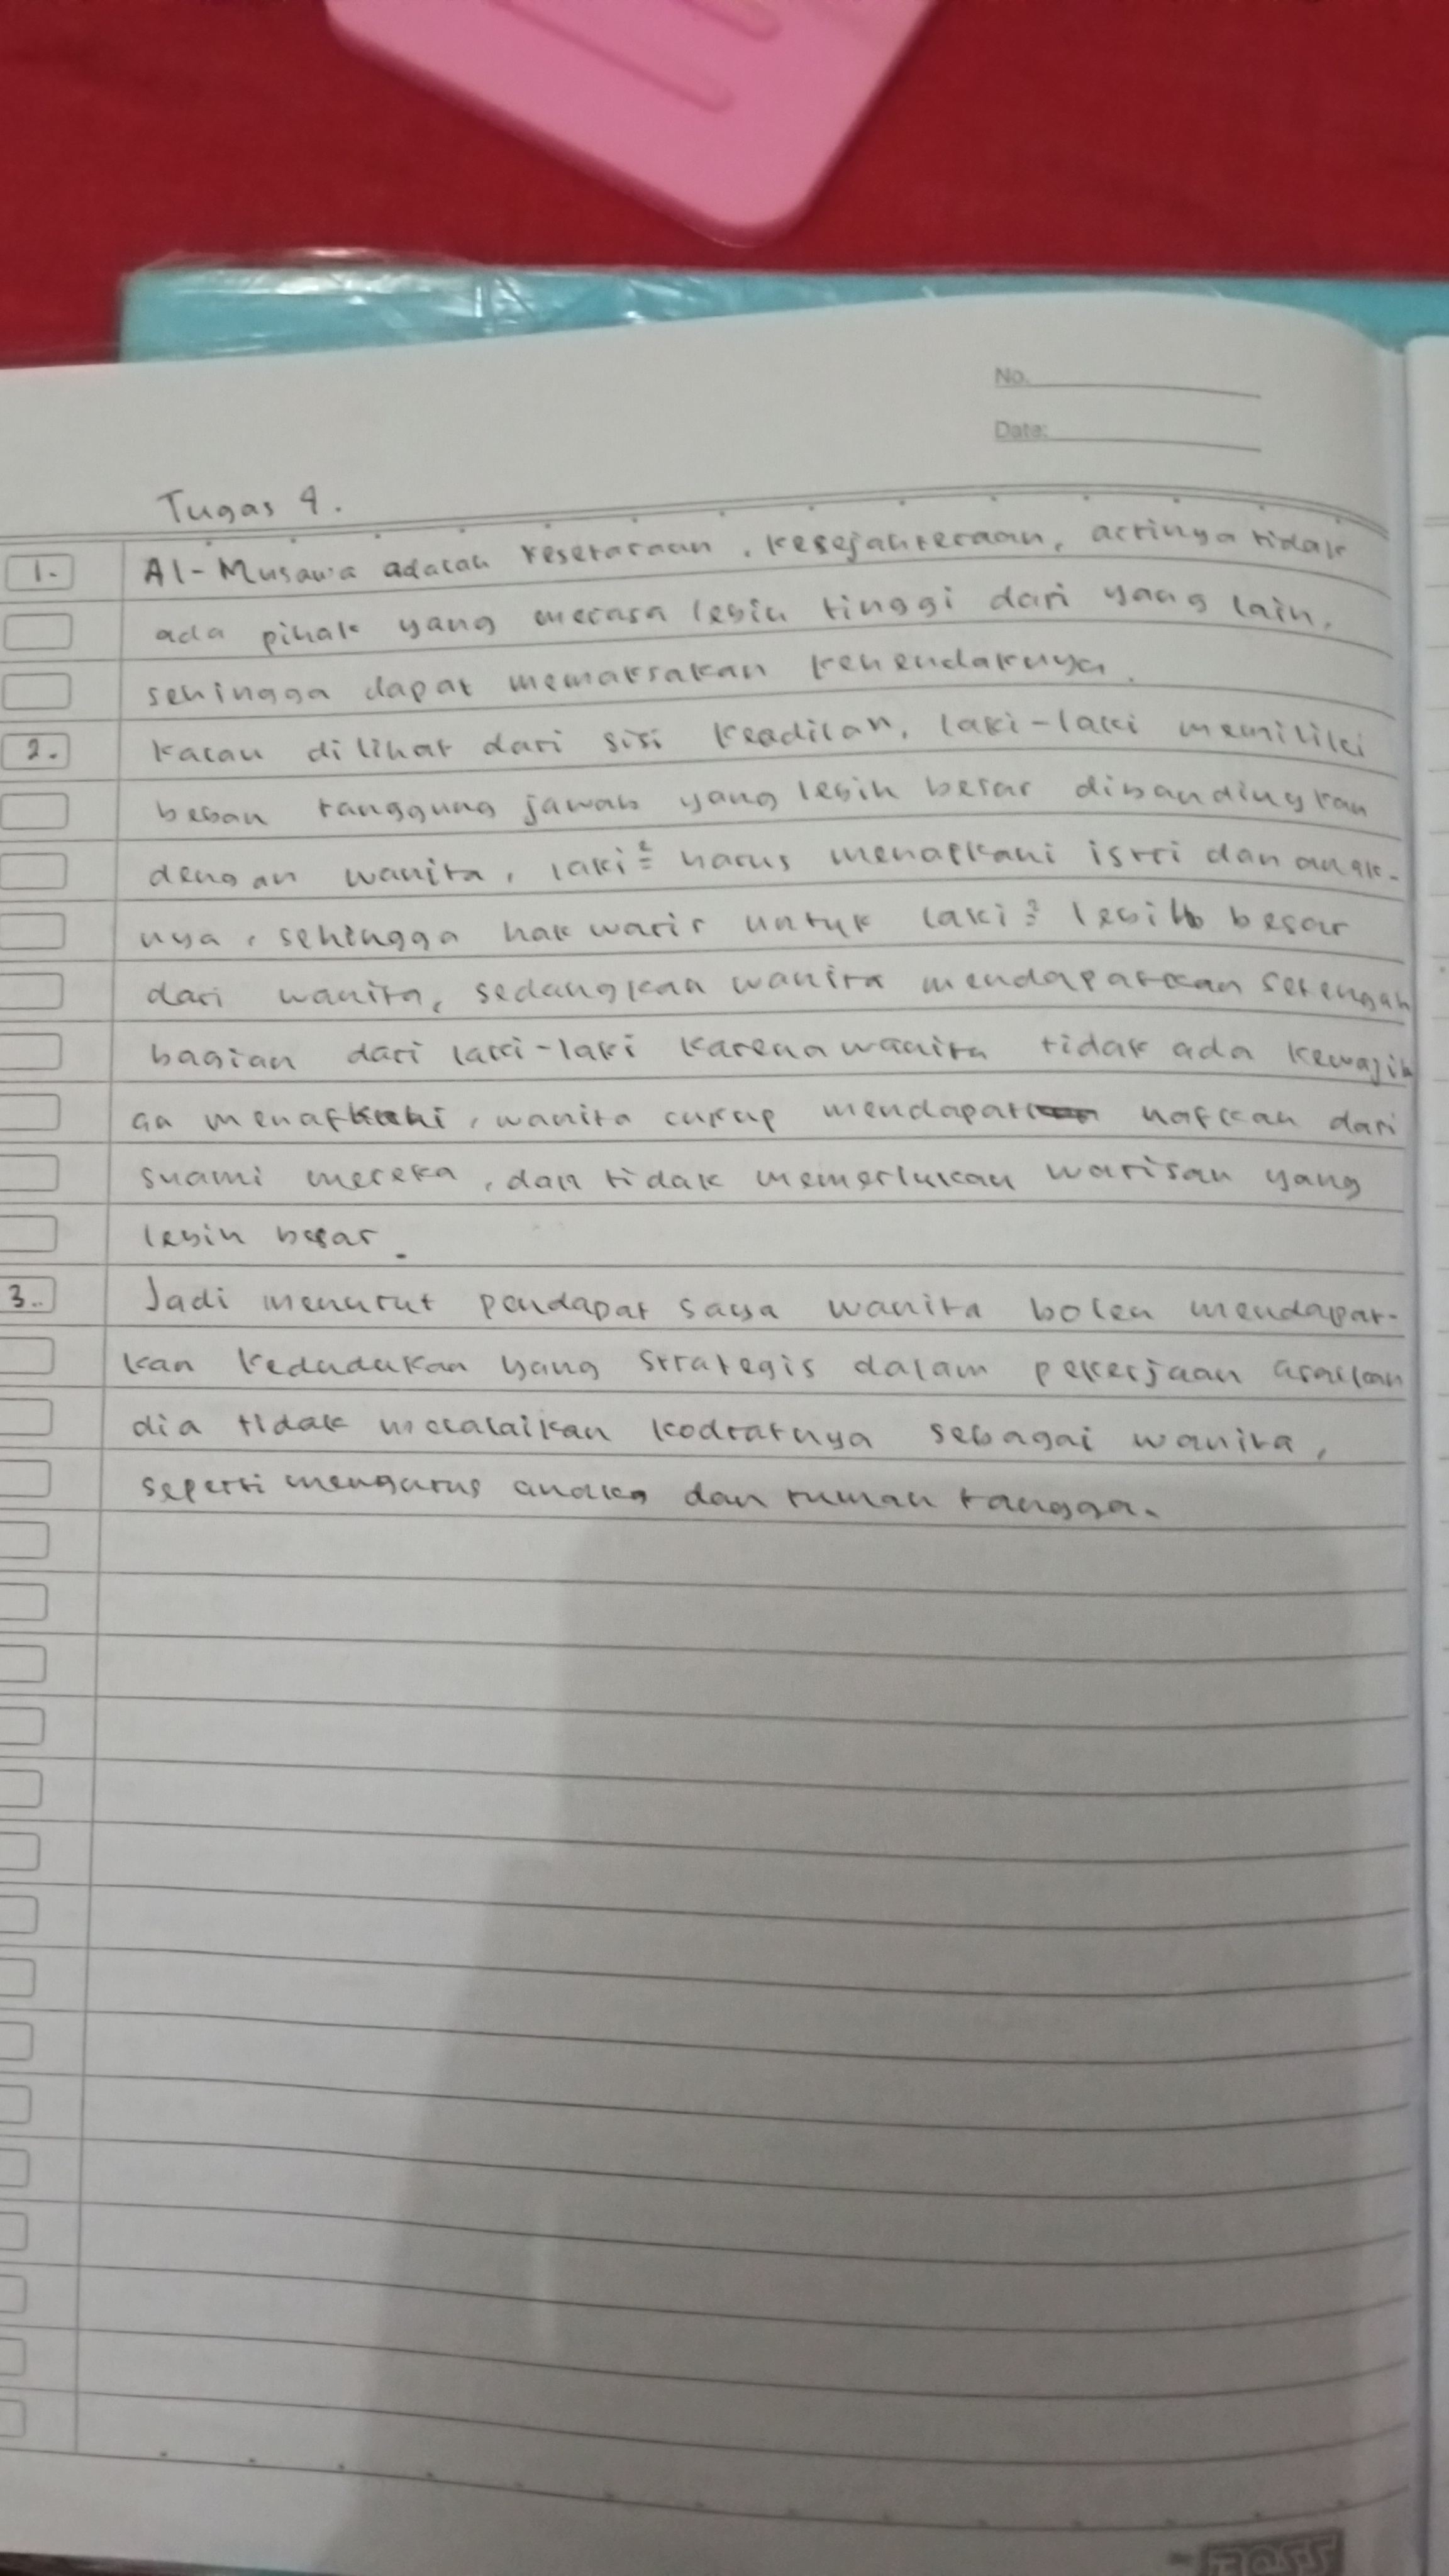 No.
Date:
Tugas 4.
1. Al-Musawa adalah kesetaraan, kesejahteraan, artinya tidak
ada pihak yang merasa lebih tinggi dari yang lain,
sehingga dapat memaksakan kehendaknya.
2. kalau dilihat dari sisi keadilan, laki-laki memiliki
beban tanggung jawab yang lebih besar dibandingkan
dengan wanita, laki² harus menafkahi istri dan anak-
nya, sehingga hak waris untuk laki² lebih besar
dari wanita, sedangkan wanita mendapatkan setengah
bagian dari laki-laki karena wanita tidak ada kewajib
an menafkahi, wanita cukup mendapat nafkah dari
suami mereka, dan tidak memerlukan warisan yang
lebih besar.
3. Jadi menurut pendapat saya wanita boleh mendapat-
kan kedudukan yang strategis dalam pekerjaan asalkan
dia tidak melalaikan kodratnya sebagai wanita,
seperti mengurus anak dan rumah tangga.